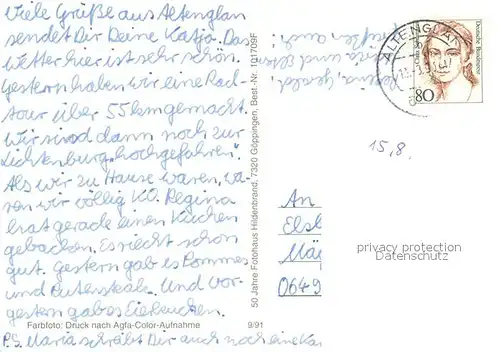 Viele Grüße aus Altenglan
sendet Dir Deine Katja. Das
Wetter hier ist sehr schön.
Gestern haben wir eine Rad-
tour über 55 km gemacht.
Wir sind dann noch zur
Lichtenburg „hochgefahren“.
Als wir zu Hause waren, wa-
ren wir völlig K.O. Regina
hat gerade einen Kuchen
gebacken. Es riecht schon
gut. Gestern gab es Pommes
und Putensteak. Und vor-
gestern gab es Eierkuchen.
Farbfoto: Druck nach Agfa-Color-Aufnahme 9/91
P.S. Maria schreibt Dir auch noch eine Kar
50 Jahre Fotohaus Hildenbrand, 7320 Göppingen, Best.-Nr. 101709F
Regina, Gerald,
Maria und
grüßen auch
ALTENGLAN
Deutsche Bundespost
80
15.8.
An
Elsb
privacy protection
Datenschutz
0649